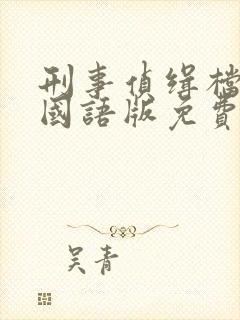 刑事偵缉檔
國語版免費
吴青